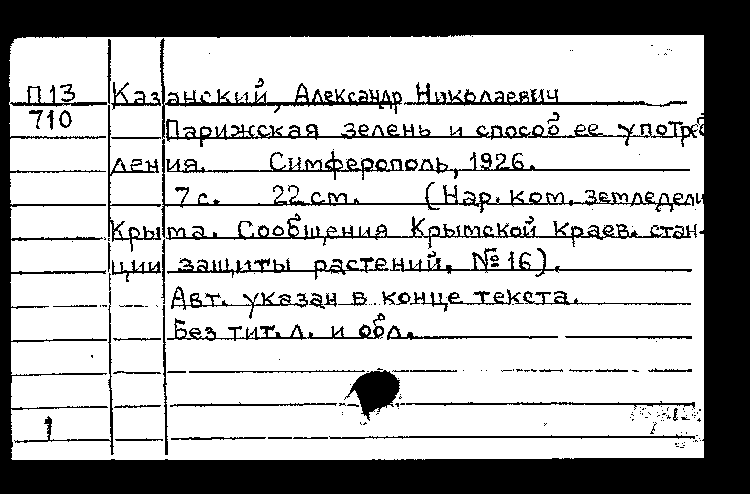 П13 Казанский, Александр Николаевич
710 Парижская зелень и способ ее употреб
ления. Симферополь, 1926.
7 с. 22 cm. (Нар. ком. земледели
Крыма. Сообщения Крымской краев. стан-
ции защиты растений, №16).
Авт. указан в конце текста.
Без тит. л. и обл.
1